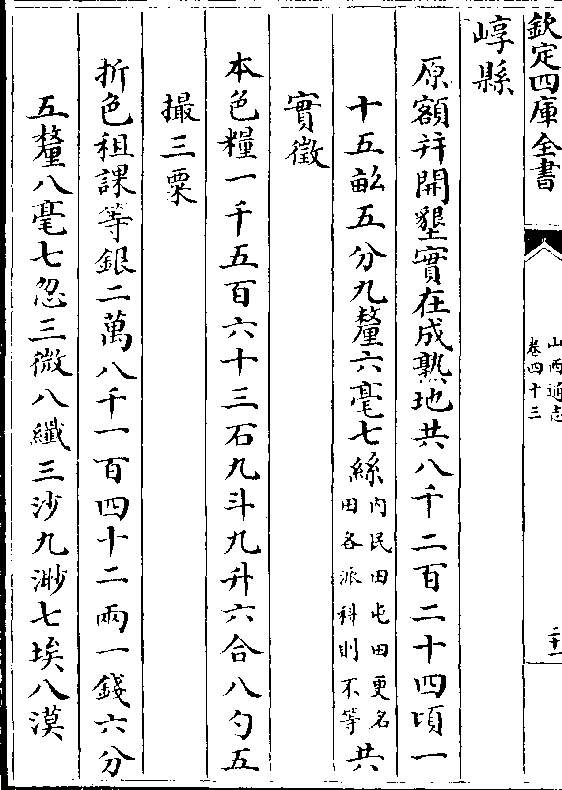 欽定四庫全書
山西通志
卷四十三
二十一
崞縣
原額并開墾實在成熟地共八千二百二十四頃一
十五畝五分九釐六毫七絲內民田屯田更名田各派科則不等共
實徵
本色糧一千五百六十三石九斗九升六合八勺五
撮三粟
折色租課等銀二萬八千一百四十二兩一錢六分
五釐八毫七忽三微八纖三沙九渺七埃八漠